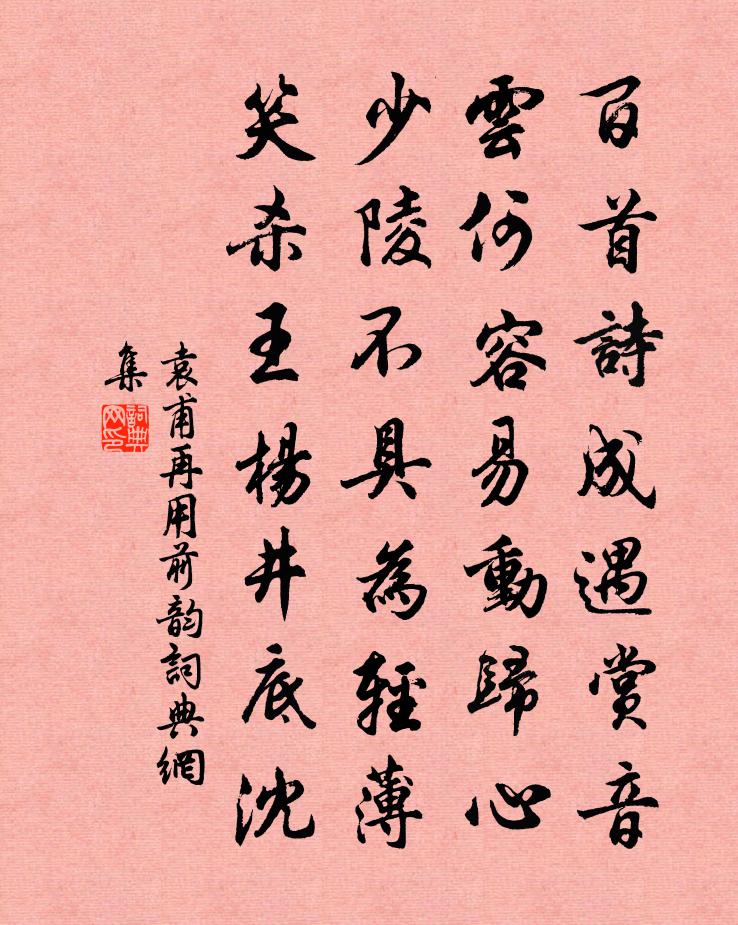 百首詩成遇賞音
雲何容易動歸心
少陵不具為輕薄
笑殺王楊井底沈
袁甫再用前韵詞典網
集
詞典网印